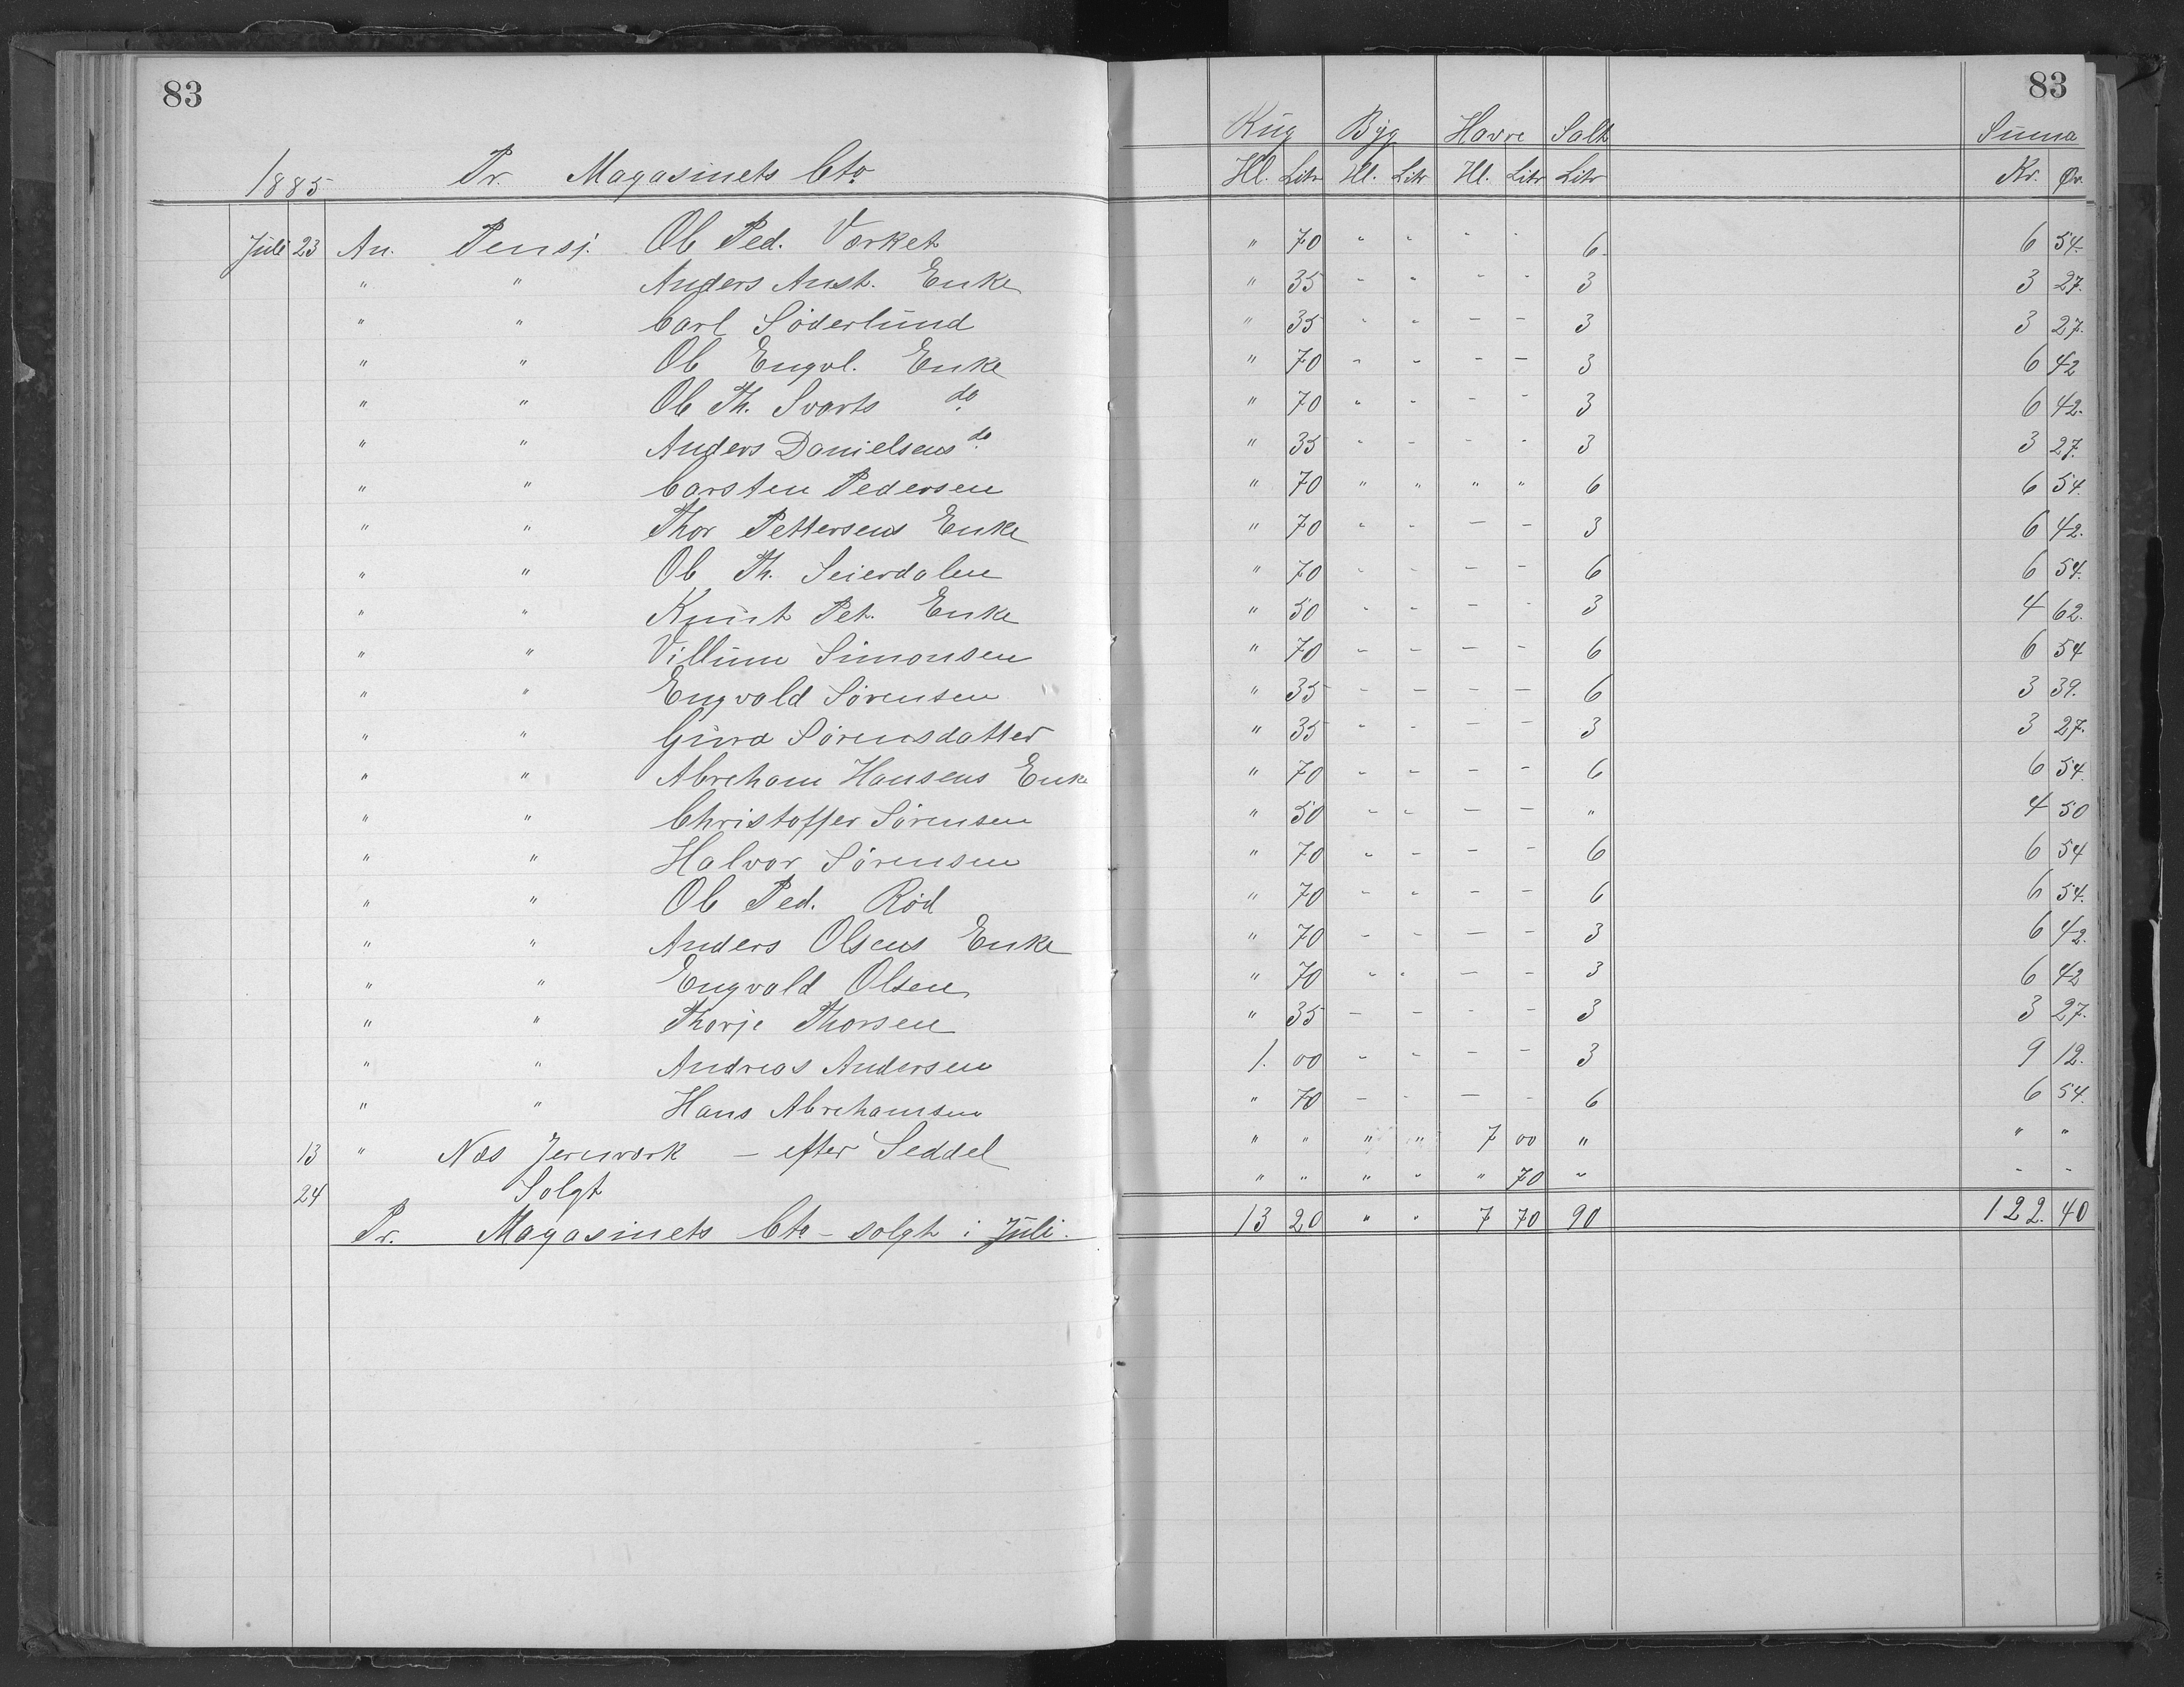 83 83
Rug Byg Havre Salt Summa
1885 Pr. Magasinets Cto Hl. Litr Hl. Litr Hl. Litr Litr Kr. Ør.
Juli 23 An. Pensj. Ol. Ped. Værket " 70 " " " " 6 6 54.
" " Anders Aust. Enke " 35 - " - - 3 3 27.
" " Carl Söderlund " 35 " " - - 3 3 27.
" " Ol. Engvl. Enke " 70 - - - - 3 6 42
" " Ol. Th. Svarts do " 70 " - - - 3 6 42.
" " Anders Danielsens do " 35 " - - - 3 3 27.
" " Carsten Pedersen " 70 " " " " 6 6 54.
" " Thor Pettersens Enke " 70 " - - - 3 6 42.
" " Ol. Th. Seierdalen " 70 - - - - 6 6 54.
" " Knut Pet. Enke " 50 " - - - 3 4 62.
" " Villum Simonsen " 70 - - - - 6 6 54
" " Engvald Sørensen " 35 - - - - 6 3 39.
" " Gura Sørensdatter " 35 " - - - 3 3 27.
" " Abreham Hansens Enke " 70 - - - - 6 6 54.
" " Christoffer Sørensen " 50 - - - - " 4 50
" " Halvor Sørensen " 70 - - - - 6 6 54
" " Ol. Ped. Röd " 70 - " - - 6 6 54.
" " Anders Olsens Enke " 70 - - - - 3 6 42.
" " Engvald Olsen " 70 " " - - 3 6 42
" " Thorje Thorsen " 35 - - - - 3 3 27.
" " Andreas Andersen 1. 00 - - - - 3 9 12.
" " Hans Abrehamsen " 70 - - - - 6 6 54.
13 " Næs Jernværk - efter Seddel " " " " 7 00 " " "
24 Solgt " " " " " 70 " - -
Pr. Magasinets Cto - solgt i Juli. 13 20 " " 7 70 90 122. 40